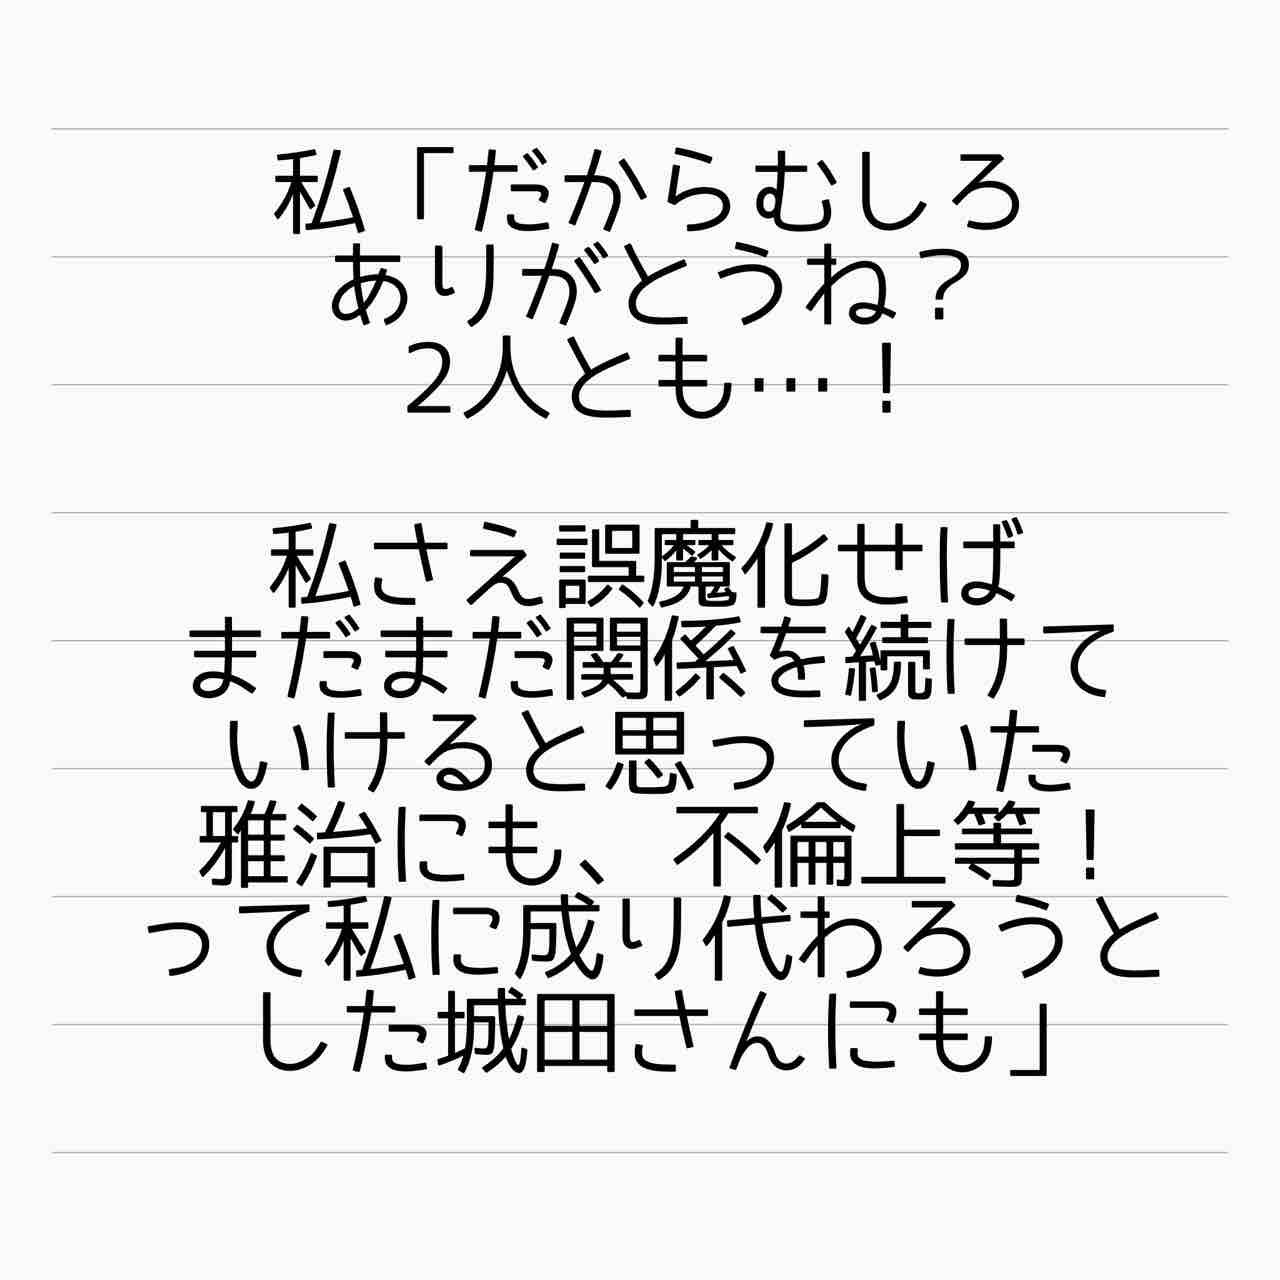 私「だからむしろ
ありがとうね？
2人とも…！
私さえ誤魔化せば
まだまだ関係を続けて
いけると思っていた
雅治にも、不倫上等！
って私に成り代わろうと
した城田さんにも」